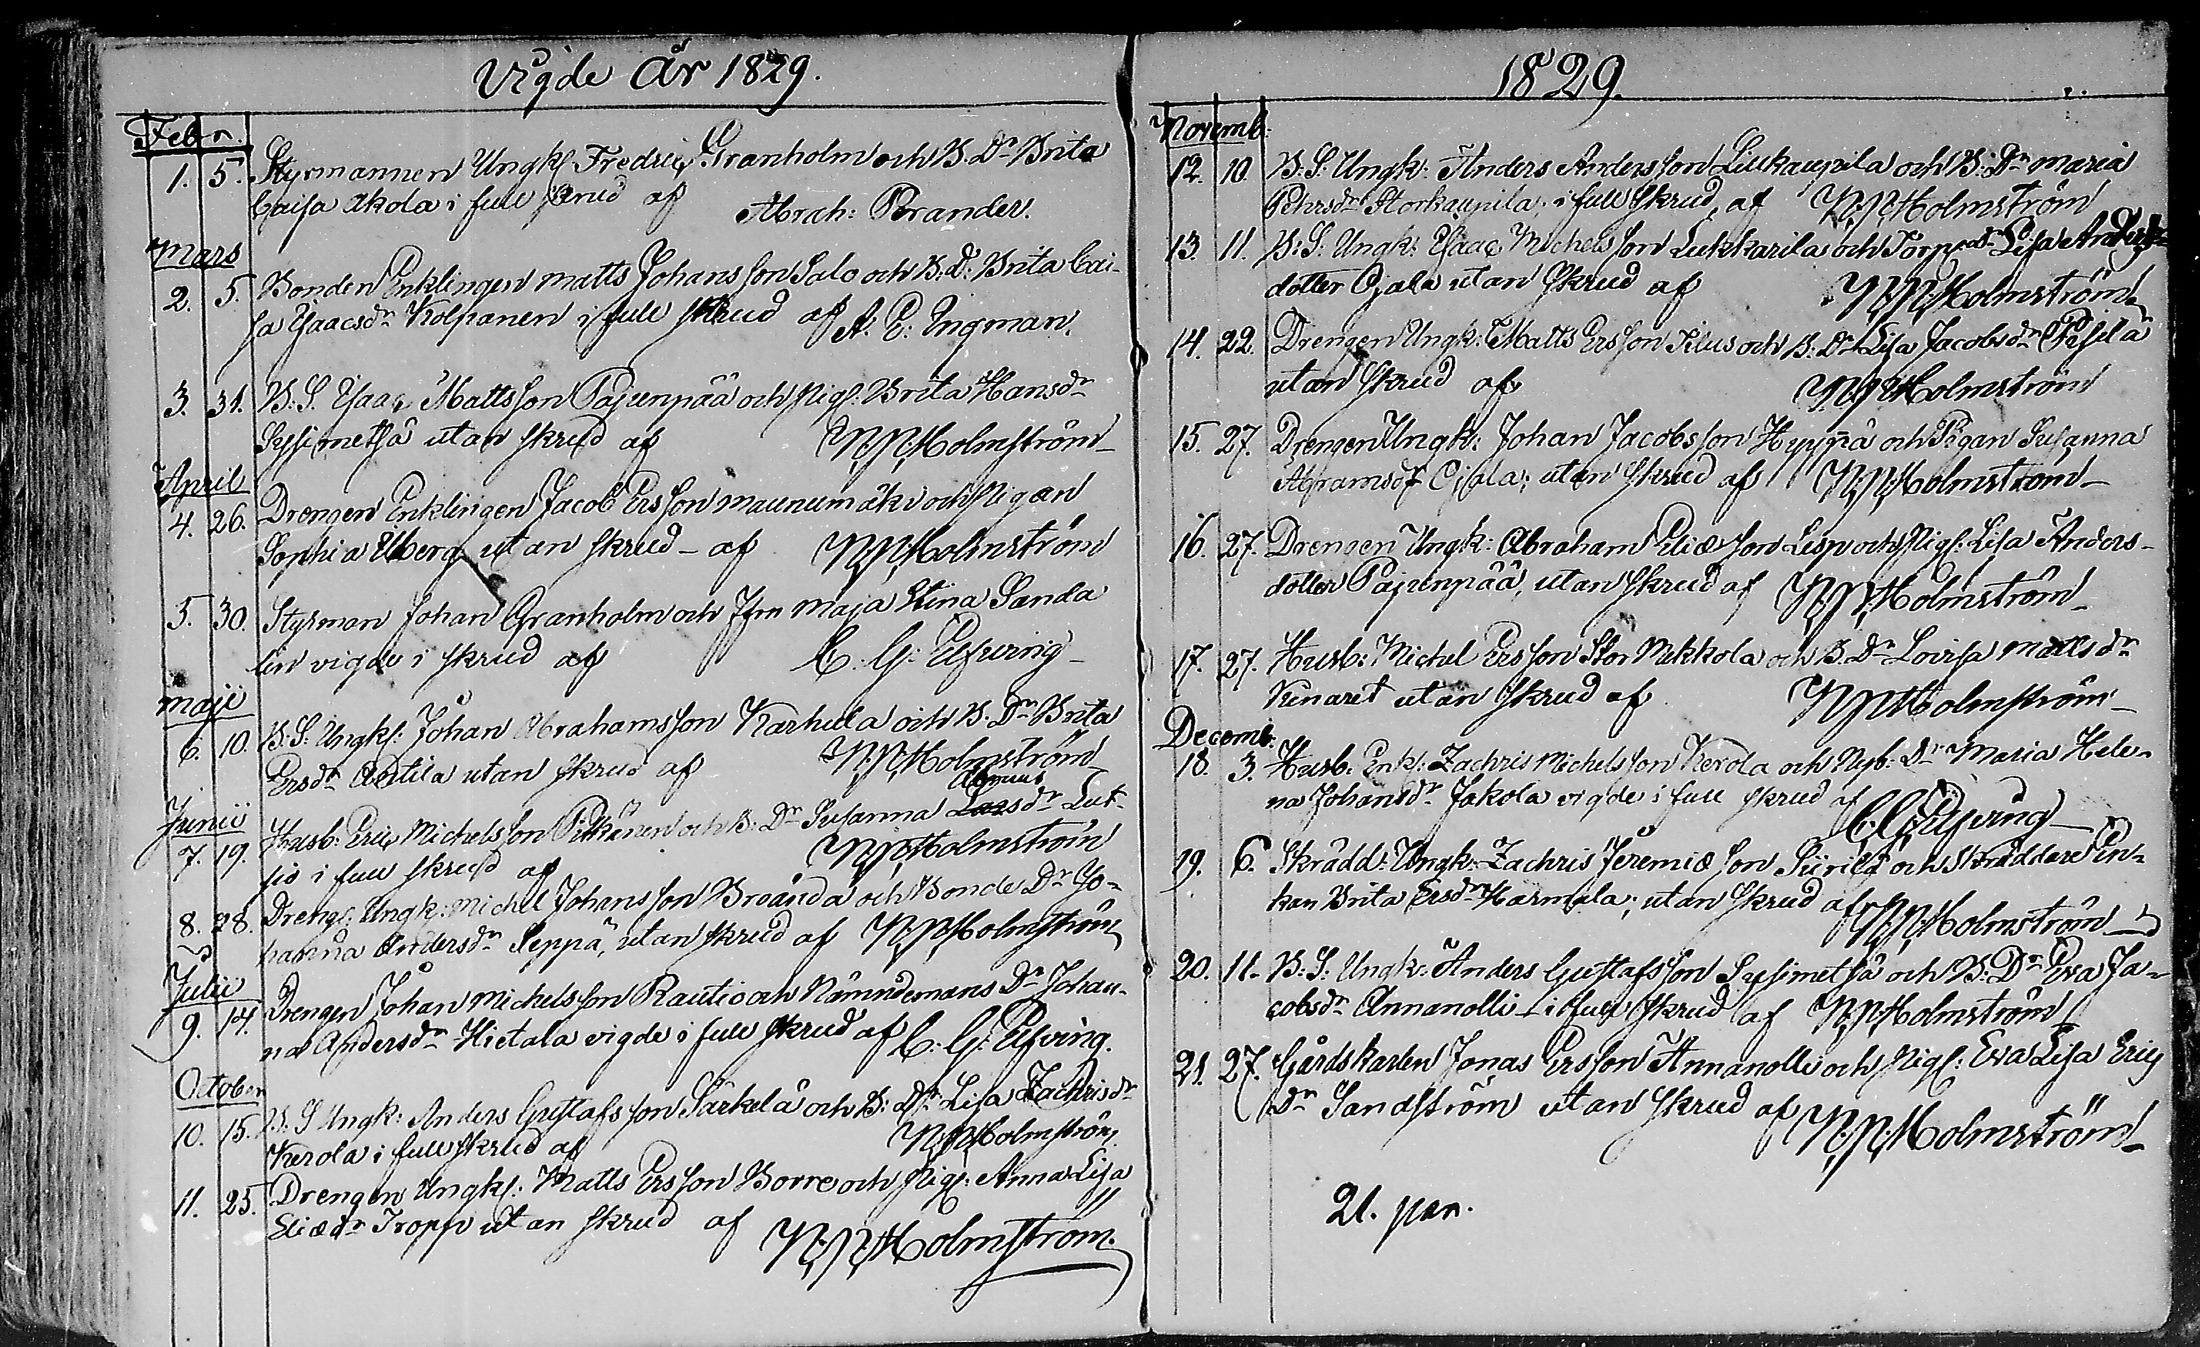 Vigde År 1829.
Febr.
1. 5. Styrmannen Ungk. Fredric Granholm och B. Dr Brita
Caisa Akola i full skrud af Abrah: Brander.
Mars
2. 5. Bonden Enklingen Matts Johansson Salo och B. D: Brita Cai-
sa Isaacsdr Kolppanen i full skrud af A. E. Ingman.
3. 31. B. S. Isaac Mattsson Pajunpää och Pig: Brita Hansdr
Sysimetsä utan skrud af N. N. Holmström
April
4. 26. Drengen Enklingen Jacob Ersson Maunumäki och Pigan
Sophia Åberg utan skrud af N. N. Holmström
5. 30. Styrman Johan Granholm och Jfrn Maja Stina Sanda
lin vigde i skrud af C. G. Elfving
Maji
6. 10. B. S. Ungk: Johan Abrahamsson Karhula och B. Dr Brita
Ersdr Antila utan skrud af N. N. Holmström
Junii
7. 19. Husb: Eric Michelsson Pitkänen och B: Dr Susanna Lut-
sio i full skrud af N. N. Holmström
8. 28. Dreng: Ungk: Michel Johansson Broända och Bonde Dr Jo-
hanna Andersdr Seppä, utan skrud af N. N. Holmström
Julii
9. 14. Drengen Johan Michelsson Rautio och Nämndemans Dr Johan-
na Andersdr Hietala vigde i full skrud af C. G. Elfving.
October
10. 15. B. S Ungk: Anders Gustafsson Särkelä och B: Dr Lisa Zachrisdr
Kerola i full skrud af N. N. Holmström
11. 25. Drengen Ungk: Matts Ersson Borre och Pig: Anna Lisa
Eliædr Tropp utan skrud af N. N. Holmström.
1829.
Novemb:
12. 10. B: S: Ungk: Anders Andersson Liukaupila och B: Dr Maria
Pehrsdr Storkaupila, i full skrud, af N. N. Holmström
13. 11. B: S. Ungk: Isaac Michelsson Lukkarila och Lisa Anders
dotter Ojala utan skrud af N. N. Holmström
14. 22. Drengen Ungk: Matts Ersson och B: Dr Lisa Jacobsdr
utan skrud af N. N. Holmström
15. 27. Drengen Ungk: Johan Jacobsson Hyyppä och Pigan Susanna
Abramsdr Ojala; utan skrud af N. N. Holmström
16. 27. Drengen Ungk: Abraham Eliæ son Lesp och Pig: Lisa Anders-
dotter Pajunpää, utan skrud af N. N. Holmström
17. 27. Husb: Michel Ersson Stor Mekkola och B. Dr Lovisa Mattsdr
Kinaret utan skrud af N. N. Holmström
Decemb:
18. 3. Husb. Enk: Zachris Michelsson Kerola och Nyb: Dr Maria Hele-
na Johansdr Jakola vigde i full skrud af C. G. Elfving
19. 6. Skrädd: Ungk: Zachris Jeremiæ son Siirilä och Skräddare En-
kan Brita Ersdr Harmala; utan skrud af N. N. Holmström
20. 11. B: S: Ungk: Anders Gustafsson Sysimetsä och B: Dr Eva Ja-
cobsdr Annanolli i full skrud af N. N. Holmström
21. 27. Gårds karlen Jonas Ersson Annanolli och Pig: Eva Lisa Eric
Dr Sandström utan skrud af N. N. Holmström
21. par.